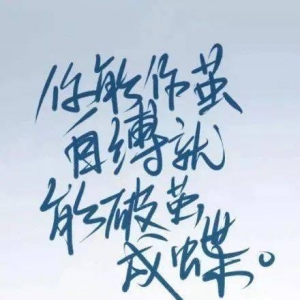 你能作茧
自缚就
能破茧,
成蝶。